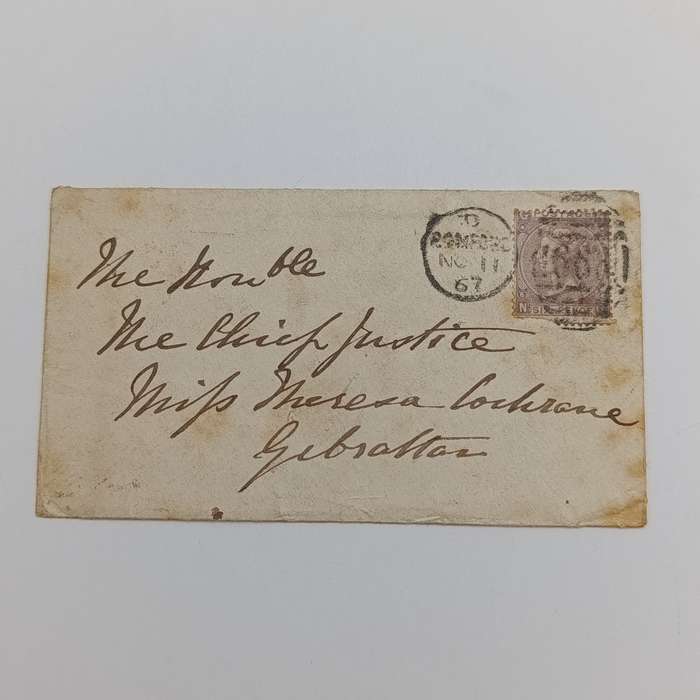 D
ROMFORD
NO 11
67
The Honble
The Chief Justice
Miss Theresa Cochrane
Gibraltar